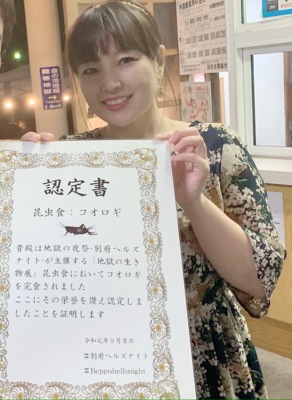 認定書
昆虫食：コオロギ
貴殿は地獄の夜祭・別府ヘルズ
ナイト・が主催する「地獄の生き
物展」昆虫食においてコオロギ
を完食されました
ここにその栄誉を讃え認定しま
したことを証明します
令和元年9月吉日
#別府ヘルズナイト
#Beppuhellsnight